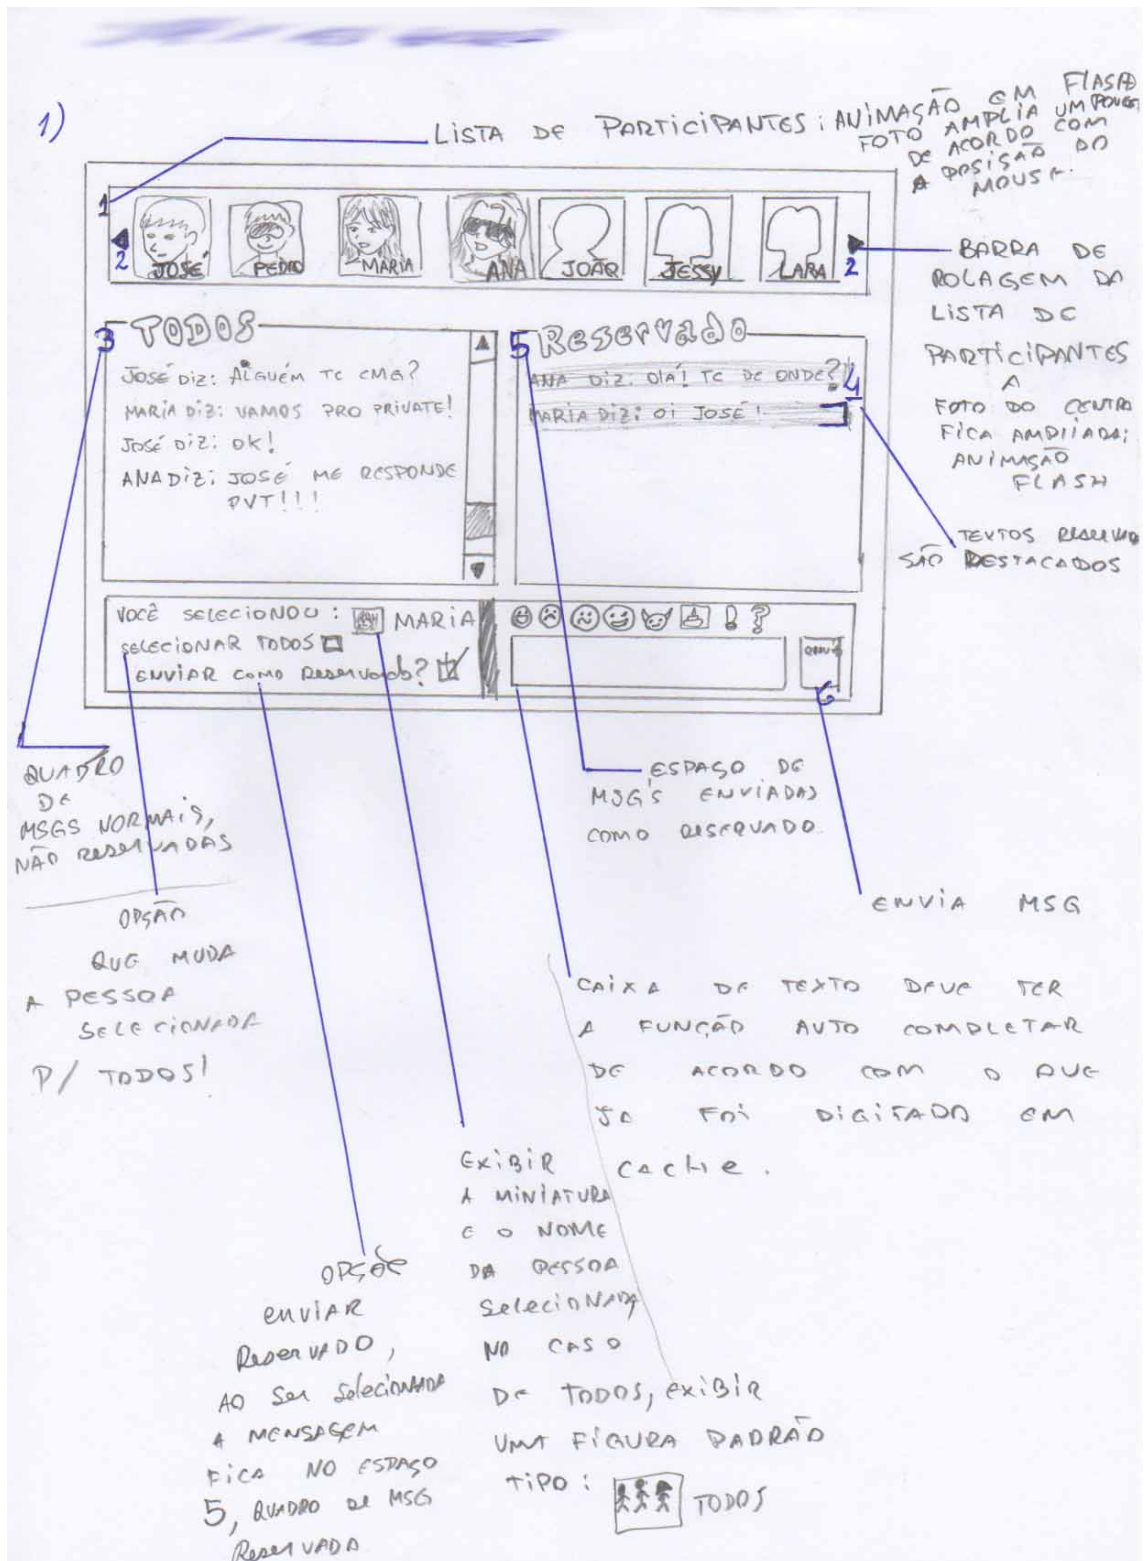 1)
LISTA DE PARTICIPANTES: ANIMAÇÃO EM FLASH
FOTO AMPLIA UM POUCO
DE ACORDO COM
A POSISÃO DO
MOUSE.
1
2
JOSÉ
PEDRO
MARIA
ANA
JOÃO
JESSY
LARA
2
BARRA DE
ROLAGEM DA
LISTA DE
PARTICIPANTES
A
FOTO DO CENTRO
FICA AMPLIADA;
ANIMAÇÃO
FLASH
3 TODOS
JOSÉ DIZ: ALGUÉM TC CMG?
MARIA DIZ: VAMOS PRO PRIVATE!
JOSÉ DIZ: OK!
ANA DIZ: JOSÉ ME RESPONDE
PVT!!!
5 Reservado
ANA DIZ: OLÁ! TC DE ONDE?
MARIA DIZ: OI JOSÉ!
4
TEXTOS RESERVADO
SÃO DESTACADOS
VOCÊ SELECIONOU: MARIA
SELECIONAR TODOS
ENVIAR COMO RESERVADO?
! ?
6
QUADRO
DE
MSGS NORMAIS,
NÃO RESERVADAS
OPSÃO
QUE MUDA
A PESSOA
SELECIONADA
P/ TODOS!
ESPAÇO DE
MSG'S ENVIADAS
COMO RESERVADO.
ENVIA MSG
CAIXA DE TEXTO DEVE TER
A FUNÇÃO AUTO COMPLETAR
DE ACORDO COM O QUE
JA FOI DIGITADO EM
CACHE.
EXIBIR
A MINIATURA
E O NOME
DA PESSOA
SELECIONADA
NO CASO
DE TODOS, EXIBIR
UMA FIGURA PADRÃO
TIPO: TODOS
OPÇÕE
ENVIAR
RESERVADO,
AO SER SELECIONADA
A MENSAGEM
FICA NO ESPAÇO
5, QUADRO DE MSG
RESERVADA